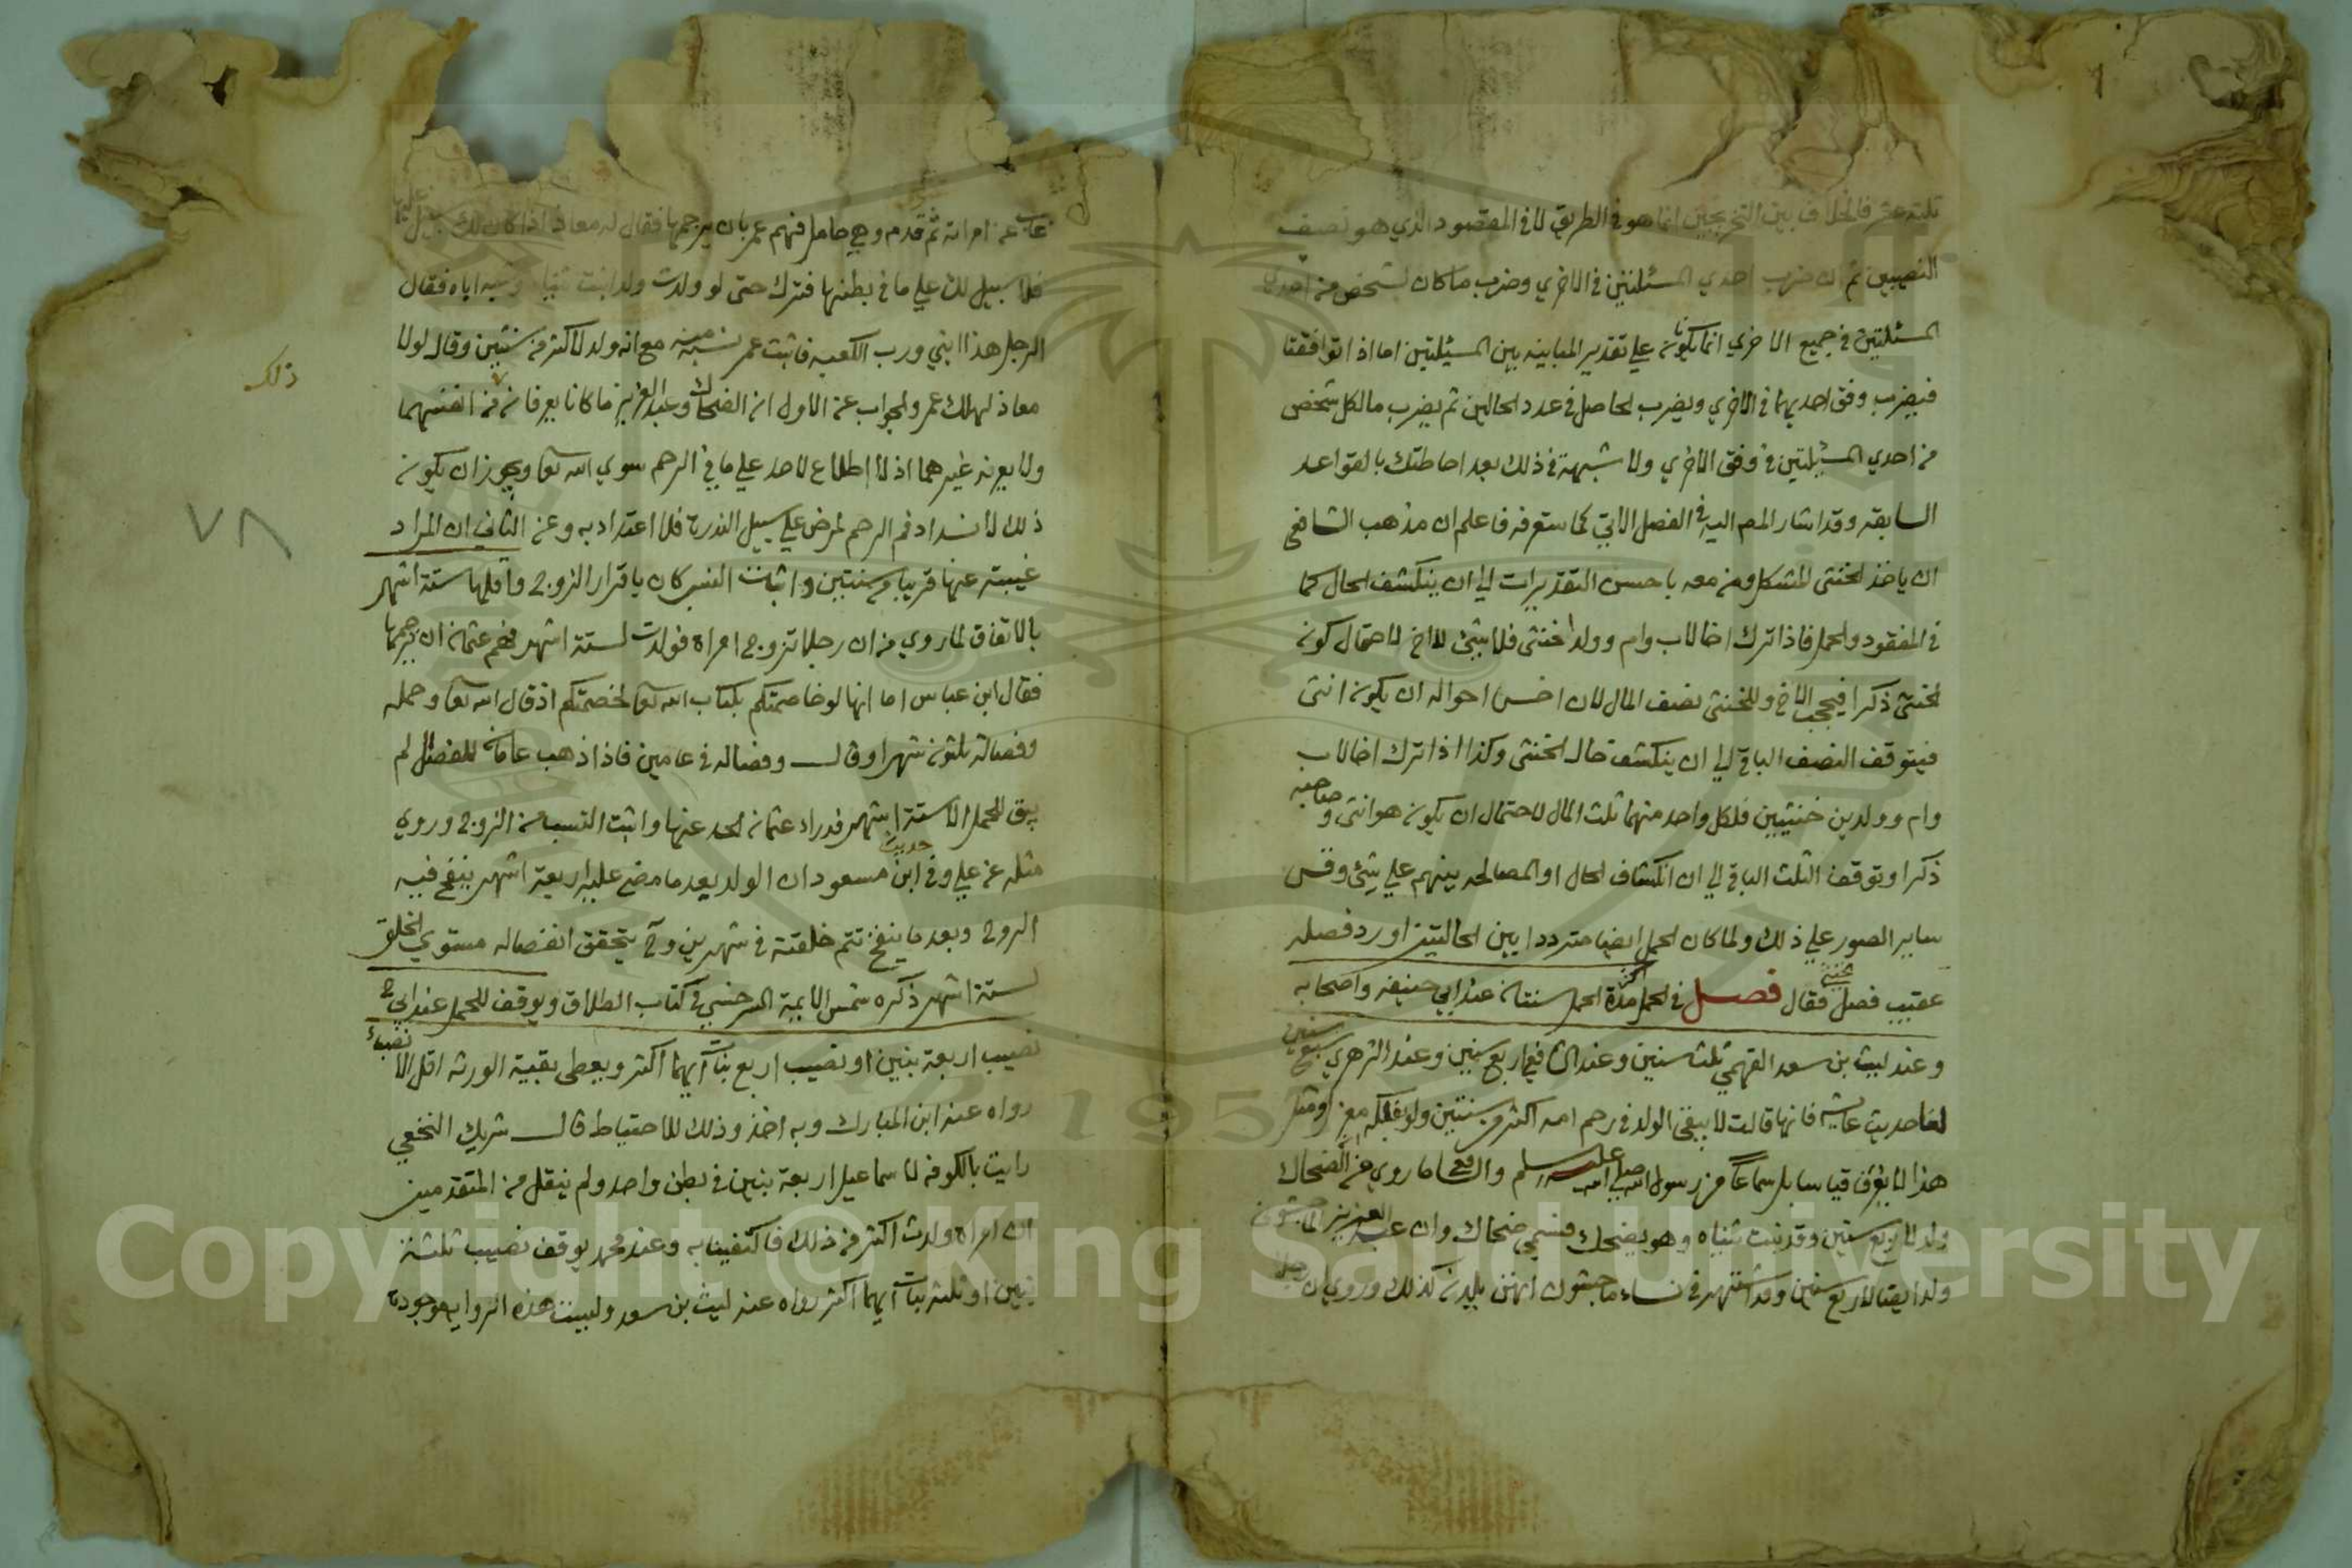 ثلثة عشر فالخلاف بين التخريجين انما هو في الطريق لا في المقصود الذي هو نصف
النصيبين ثم ان ضرب احدي المسئلتين في الاخري وضرب ما كان لشخص من احدي
المسئلتين في جميع الاخري انما يكونا علي تقدير المباينه بين المسئلتين اما اذا توافقتا
فيضرب وفق احديهما في الاخري ويضرب الحاصل في عدد الحالين ثم يضرب ما لكل شخص
من احدي المسئلتين في وفق الاخري ولا شبهة في ذلك بعد احاطتك بالقواعد
السابقه وقد اشار المص اليه في الفصل الاتي كما ستعرفه فاعلم ان مذهب الشافعي
ان ياخذ الخنثي المشكل ومن معه باحسن التقديرات الي ان ينكشف الحال كما
في المفقود والحمل فاذا ترك اخا لاب وام وولدا خنثي فلا شيئ للاخ لاحتمال كونه
الخنثي ذكرا فيحجب الاخ وللخنثي نصف المال لان اخس احواله ان يكون انثي
فيتوقف النصف الباقي الي ان ينكشف حال الخنثي وكذا اذا ترك اخا لاب
وام وولدين خنثيين فلكل واحد منهما ثلث المال لاحتمال ان يكون هو انثي وصاحبه
ذكرا وتوقف الثلث الباقي الي ان انكشاف الحال او المصالحه بينهم علي شيئ وقس
ساير الصور علي ذلك ولما كان الحمل ايضا مترددا بين الحالتين اورد فصله
عقيب فصل خنثي فقال فصل في الحمل اكثر مدة الحمل سنتان عند ابي حنيفه واصحابه
وعند ليث بن سعد الفهمي ثلث سنين وعند الشافعي اربع سنين وعند الزهري سبع سنين
لنا حديث عايشه فانها قالت لا يبقي الولد في رحم امه اكثر من سنتين ولو بفلكه مغزل ومثل
هذا لا يعرف قياسا بل سماعا من رسول الله صلي الله عليه وسلم والشافعي ما روي عن الضحاك
ولد لاربع سنين وقد نبت ثنياه وهو يضحك فسمي ضحاك وان عبد العزيز الماجشون
ولد ايضا لاربع سنين وقد اشتهر في نساء ماجشون انهن يلدن كذلك وروي ان رجلا
غاب عن امراته ثم قدم وهي حامل فهم عمر بان يرجمها فقال له معاذ اذا كان لك سبيل عليها
فلا سبيل لك علي ما في بطنها فترك حتى لو ولدت ولدا نبت ثنياه وشبه اباه فقال
الرجل هذا ابني ورب الكعبه فاثبت عمر نسبه منه مع انه ولد لاكثر من سنتين وقال لولا
معاذ لهلك عمر والجواب عن الاول ان الضحاك وعبد العزيز ما كانا يعرفان من انفسهما
ولا يعرف غيرهما اذ لا اطلاع لاحد علي ما في الرحم سوي الله تعا ويجوز ان يكون
ذلك لانسداد فم الرحم لمرض علي سبيل الندرة فلا اعتداد به وعن الثاني ان المراد
غيبته عنها قريبا من سنتين واثبات النسب كان باقرار الزوج واقلها ستة اشهر
بالاتفاق لما روي من ان رجلا تزوج امراة فولدت لستة اشهر فهم عثمان ان يرجمها
فقال ابن عباس اما انها لو خاصمتكم بكتاب الله تعا لخصمتكم اذ قال الله تعا وحمله
وفصاله ثلثون شهرا وقال وفصاله في عامين فاذا ذهب عامان للفصال لم
يبق للحمل الا ستة اشهر فدراء عثمان الحد عنها واثبت النسب من الزوج وروي
مثله عن علي وفي حديث ابن مسعود ان الولد بعد ما مضي عليه اربعة اشهر ينفخ فيه
الروح وبعد ما ينفخ تتم خلقتة في شهرين وح يتحقق انفصاله مستوي الخلق
لستة اشهر ذكره شمس الايمة السرخسي في كتاب الطلاق ويوقف للحمل عند ابي ح
نصيب اربعة بنين او نصيب اربع بنات ايهما اكثر ويعطى بقية الورثه اقل الانصباء
رواه عنه ابن المبارك وبه اخذ وذلك للاحتياط قال شريك النخعي
رايت بالكوفه لاسماعيل اربعة بنين في بطن واحد ولم ينقل من المتقدمين
ان امراة ولدت اكثر من ذلك فاكتفينا به وعند محمد يوقف نصيب ثلثة
بنين او ثلث بنات ايهما اكثر رواه عنه ليث بن سعد وليست هذه الرواية موجودة
ذلك
٧٨
Copyright © King Saud University
1957